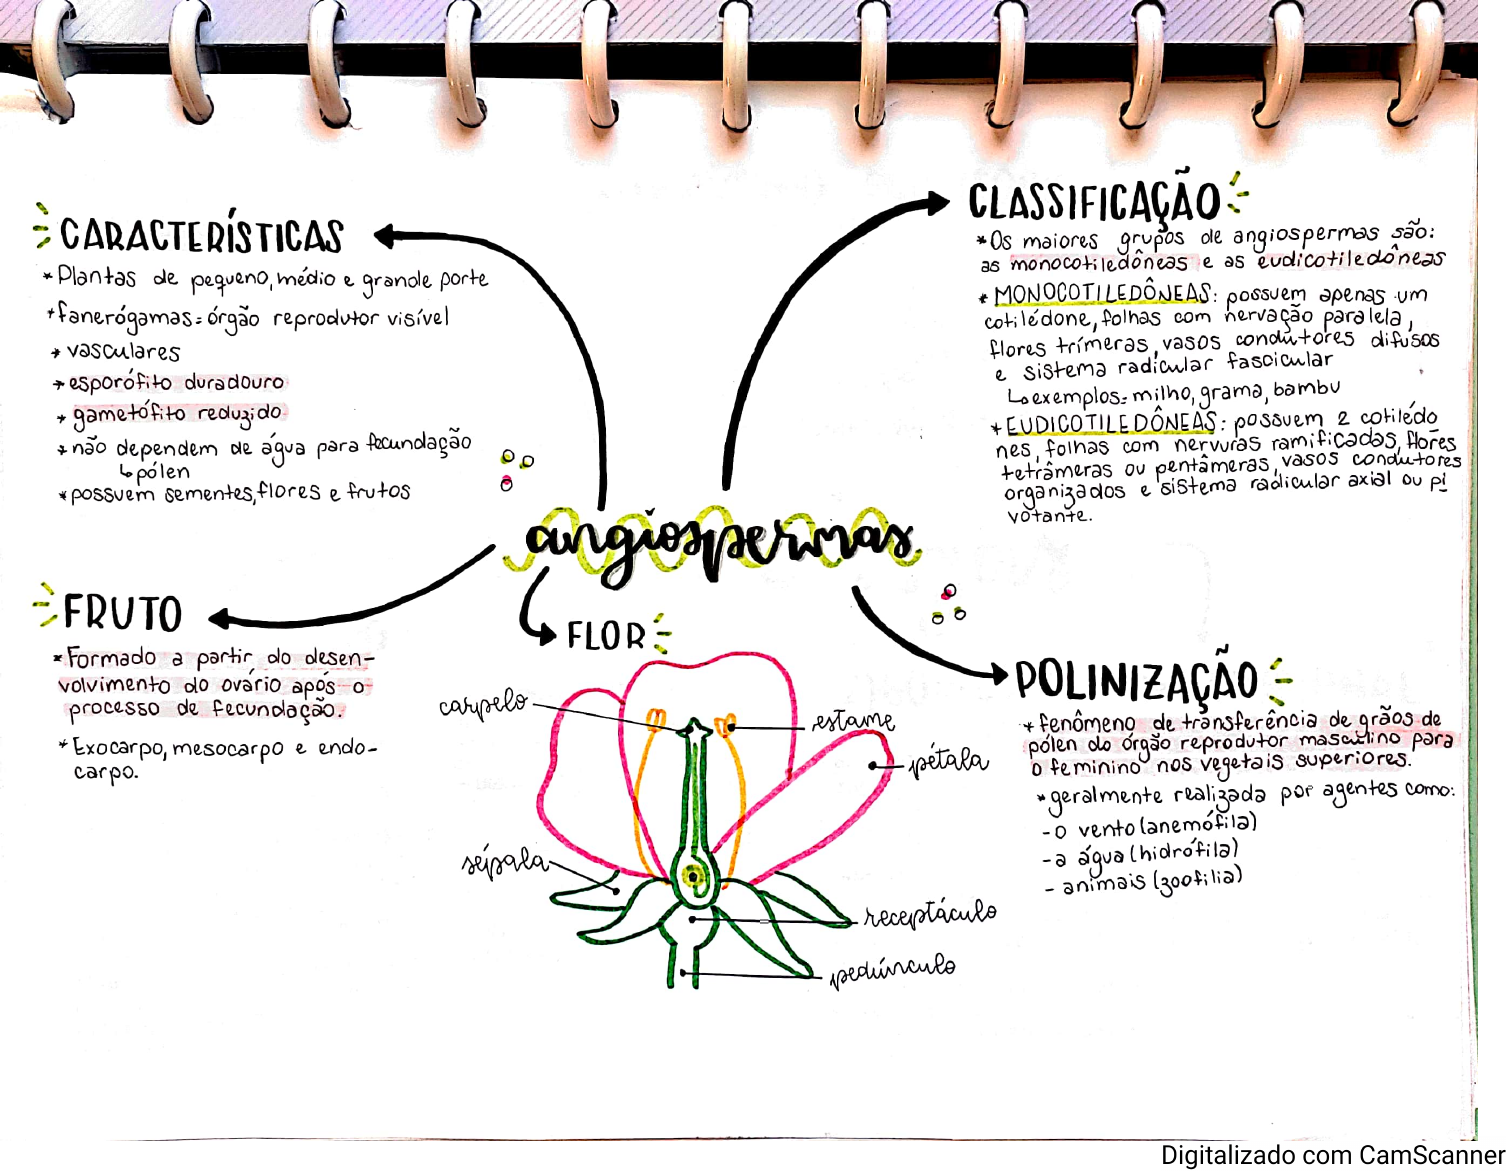 CARACTERÍSTICAS
*Plantas de pequeno, médio e grande porte
*fanerógamas=órgão reprodutor visível
*vasculares
*esporófito duradouro
*gametófito reduzido
*não dependem de água para fecundação
↳pólen
*possuem sementes, flores e frutos
CLASSIFICAÇÃO
*Os maiores grupos de angiospermas são:
as monocotiledôneas e as eudicotiledôneas
*MONOCOTILEDÔNEAS: possuem apenas um
cotilédone, folhas com nervação paralela,
flores trímeras, vasos condutores difusos
e sistema radicular fascicular
↳exemplos: milho, grama, bambu
*EUDICOTILEDÔNEAS: possuem 2 cotilédo
nes, folhas com nervuras ramificadas, flores
tetrâmeras ou pentâmeras, vasos condutores
organizados e sistema radicular axial ou pi
votante.
angiospermas
FRUTO
*Formado a partir do desen-
volvimento do ovário após o
processo de fecundação.
*Exocarpo, mesocarpo e endo-
carpo.
FLOR
carpelo
estame
pétala
sépala
receptáculo
pedúnculo
POLINIZAÇÃO
*fenômeno de transferência de grãos de
pólen do órgão reprodutor masculino para
o feminino nos vegetais superiores.
*geralmente realizada por agentes como:
-o vento (anemófila)
-a água (hidrófila)
- animais (zoofilia)
Digitalizado com CamScanner